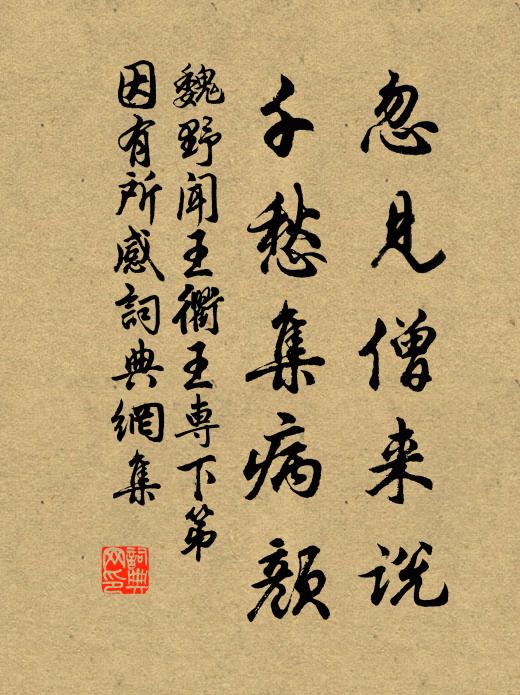 忽見僧来说
千愁集病顔
魏野闻王衢王専下第
因有所感詞典網集
詞典网印